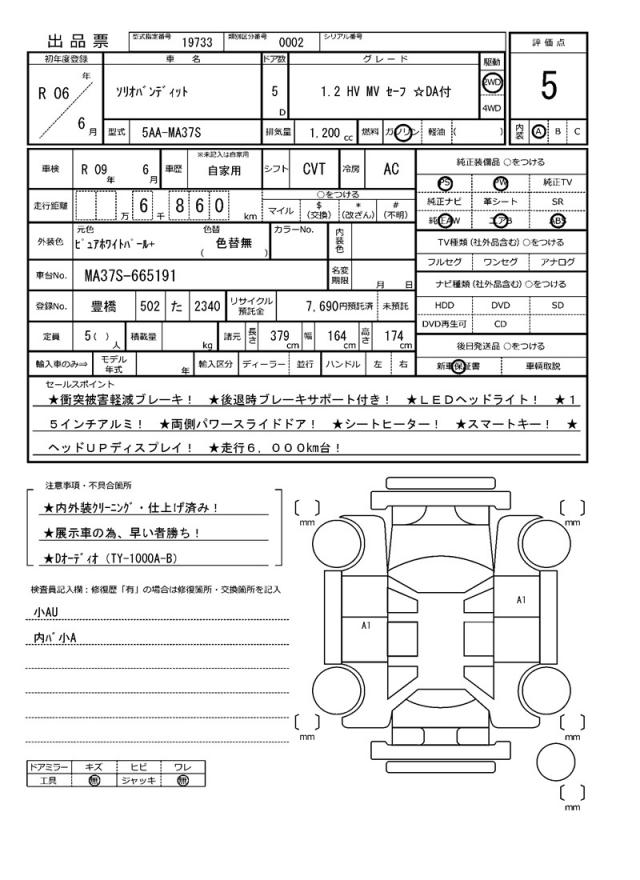 出品票 型式指定番号 19733 類別区分番号 0002 シリアル番号
評価点
5
内装 A B C
初年度登録 車名 ドア数 グレード 駆動
R 06 年 6 月 ソリオバンディット 5 D 1.2 HV MV セーフ ☆DA付 2WD 4WD
型式 5AA-MA37S 排気量 1.200 cc 燃料 ガソリン 軽油 ( )
車検 R 09 年 6 月 車歴 ※未記入は自家用 自家用 シフト CVT 冷房 AC
走行距離 万 6 千 8 6 0 km ○をつける マイル $(交換) *(改ざん) #(不明)
外装色 元色 ピュアホワイトパール+ 色替 ( 色替無 ) カラーNo. 内装色
車台No. MA37S-665191 名変期限 月 日
登録No. 豊橋 502 た 2340 リサイクル預託金 7,690円預託済 未預託
定員 5( ) 人 積載量 kg 諸元 長さ 379 cm 幅 164 cm 高さ 174 cm
輸入車のみ⇒ モデル年式 年 輸入区分 ディーラー 並行 ハンドル 左 右
純正装備品 ○をつける
PS PW 純正TV
純正ナビ 革シート SR
純正AW エアB ABS
TV種類 (社外品含む) ○をつける
フルセグ ワンセグ アナログ
ナビ種類 (社外品含む) ○をつける
HDD DVD SD
DVD再生可 CD
後日発送品 ○をつける
新車保証書 車輌取説
セールスポイント
★衝突被害軽減ブレーキ! ★後退時ブレーキサポート付き! ★LEDヘッドライト! ★1
5インチアルミ! ★両側パワースライドドア! ★シートヒーター! ★スマートキー! ★
ヘッドUPディスプレイ! ★走行6,000km台!
注意事項・不具合箇所
★内外装クリーニング・仕上げ済み!
★展示車の為、早い者勝ち!
★Dオーディオ (TY-1000A-B)
検査員記入欄:修復歴「有」の場合は修復箇所・交換箇所を記入
小AU
内バ小A
ドアミラー キズ ヒビ ワレ
工具 無 ジャッキ 無
mm
mm
A1
A1
mm
mm
mm